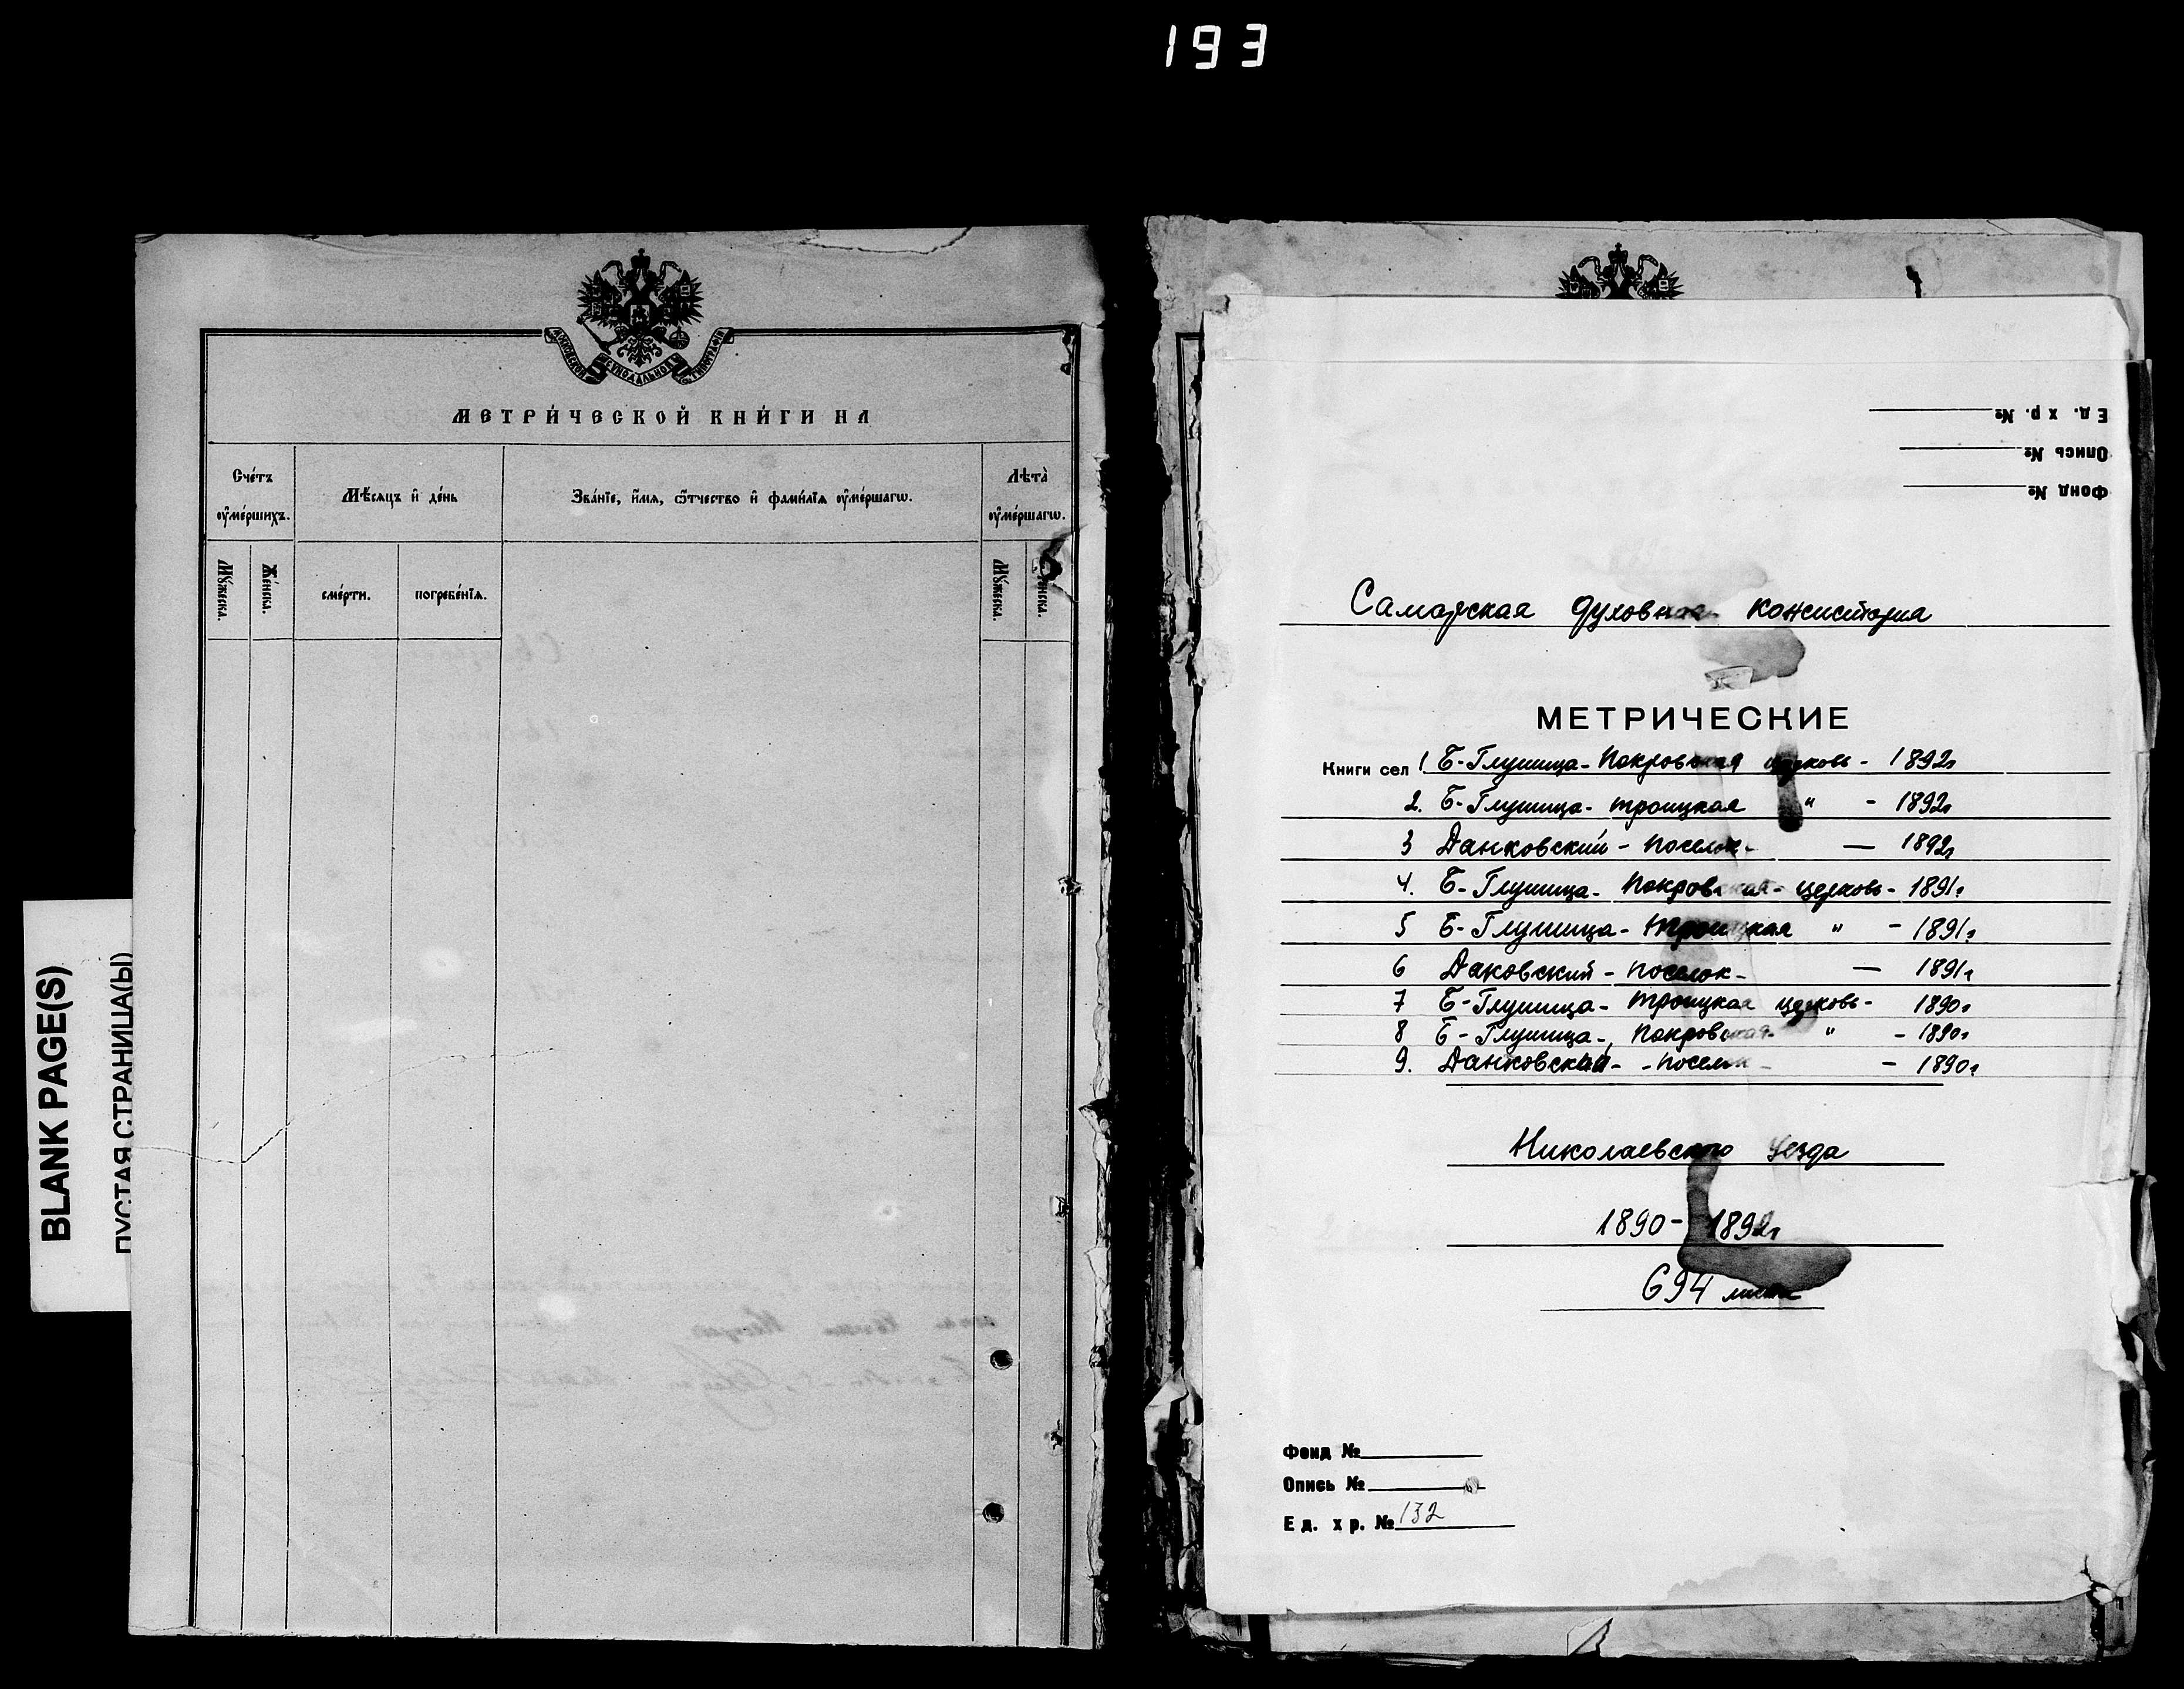 193
BLANK PAGE(S)
ПУСТАЯ СТРАНИЦА(Ы)
МОСКОВСКОЙ СѴНОДАЛЬНОЙ ТИПОГРАФІИ
МЕТРИ́ЧЕСКОЙ КНИ́ГИ НА
Сче́тъ ᲂу҆ме́ршихъ.
Мѣ́сяцъ и҆ де́нь
Зва́нїе, и҆́мѧ, ѻ҆́тчество и҆ фами́лїѧ ᲂу҆ме́ршагѡ.
Лѣта̀ ᲂу҆ме́ршагѡ.
Мꙋ́жеска.
Же́нска.
сме́рти.
погребе́нїѧ.
Мꙋ́жеска.
Фонд №
Опись №
Ед. хр. №
Самарская духовная консистория
МЕТРИЧЕСКИЕ
Книги сел 1 Б-Глушица- Покровская церковь - 1892г
2. Б-Глушица- троицкая " - 1892г
3 Данковский - поселок - — 1892г
4. Б-Глушица- Покровская- церковь- 1891г
5 Б-Глушица- Троицкая " - 1891г
6 Даковский - поселок- — 1891г
7 Б-Глушица- троицкая церковь- 1890г
8 Б-Глушица- Покровская- " - 1890г
9. Данковский- -поселок - - 1890г
Николаевского уезда
1890- 1892г
694 листа
Фонд №
Опись №
Ед. хр. № 132